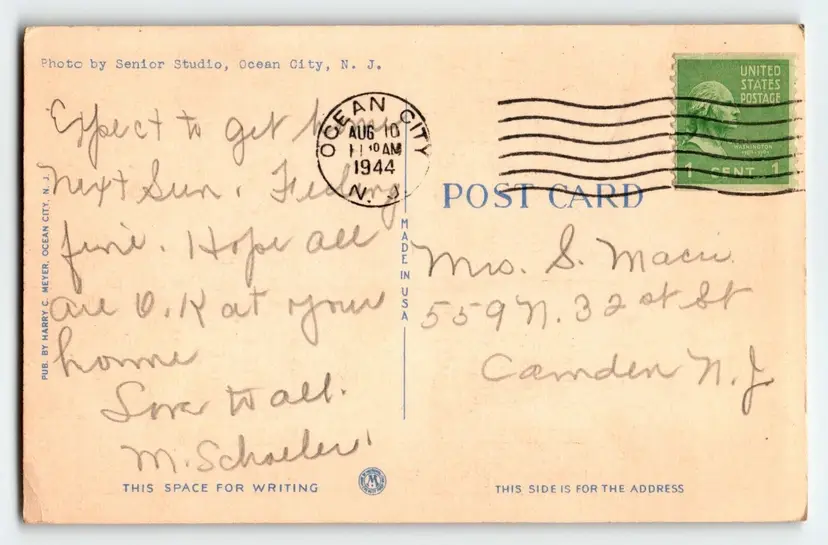 Photo by Senior Studio, Ocean City, N. J.
Expect to get home
next Sun. Feeling
fine. Hope all
are O.K at your
home
Love to all.
M. Schaeler
PUB. BY HARRY C. MEYER, OCEAN CITY, N. J.
THIS SPACE FOR WRITING
MADE IN USA
OCEAN CITY
AUG 10
11 10 AM
1944
N. J.
UNITED
STATES
POSTAGE
WASHINGTON
1 CENT 1
POST CARD
Mrs. S. Maciu
559 N. 32 st St
Camden N. J
THIS SIDE IS FOR THE ADDRESS